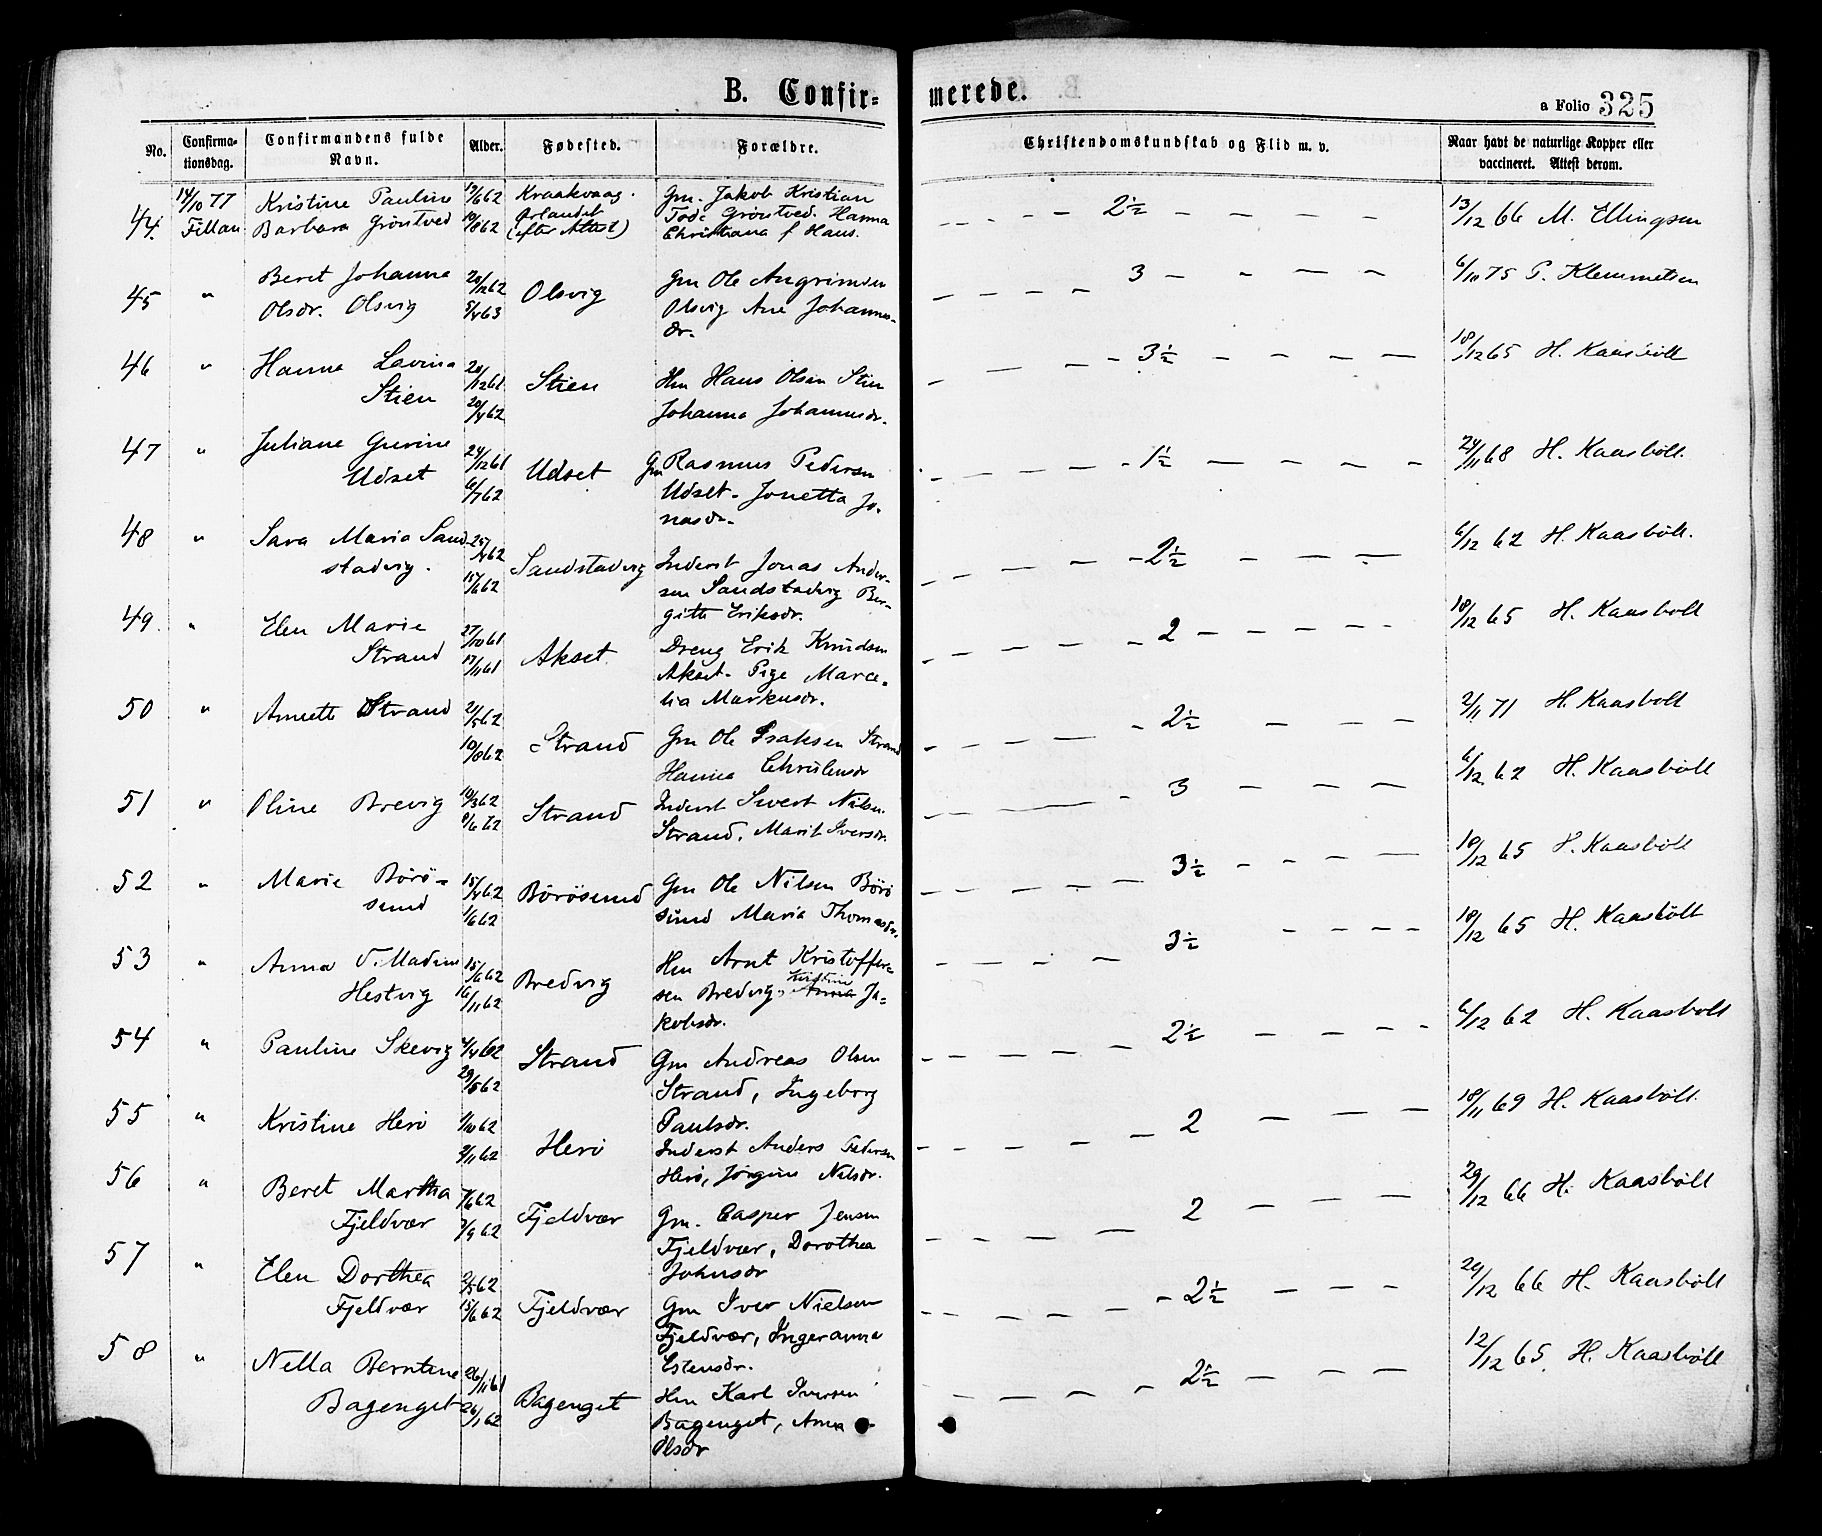 B. Confir-
merede.
a Folio 325
No. Confirma-tionsdag. Confirmandens fulde Navn. Alder. Fødested. Forældre. Christendomskundskab og Flid m. v. Naar havt de naturlige Kopper eller vaccineret. Attest derom.
44. 14/10 77 Kristine Pauline Kraakvaag. Gm. Jakob Kristian 2½ 13/12 66 M. Ellingsen
Fillan Barbara Grøntved 10/8 62 Ørlandet Tode Grøntved. Hanna
(efter Attest) Christiana f Haus.
45 " Beret Johanna 28/12 62 Olsvig Gm Ole Angrimsen 3 6/10 75 P. Klemmetsen
Olsdr. Olsvig 5/4 63 Olsvig Ane Johannes-
dr.
46 " Hanna Lovina 20/12 61 Stien Hm Hans Olsen Stien 3½ 18/12 65 H. Kaasbøll
Stien 20/4 62 Johanna Johannesdr.
47 " Juliane Gurine 24/12 61 Udset Gm Rasmus Pedersen 1½ 24/11 68 H. Kaasbøll.
Udset 6/7 62 Udset. Jonetta Jo-
nasdr.
48 " Sara Maria Sand- 25/4 62 Sandstadvig Inderst Jonas Ander- 2½ 6/12 62 H. Kaasbøll.
stadvig. 15/6 62 sen Sandstadvig Ber-
gitte Eriksdr.
49. " Elen Marie 27/10 61 Akset. Dreng Erik Knudsen 2 18/12 65 H. Kaasbøll
Strand 17/11 61 Akset. Pige Marce-
lia Markusdr.
50 " Annette Strand 21/5 62 Strand Gm Ole Isaksen Strand 2½ 2/11 71 H. Kaasbøll
10/8 62 Hanna Christensdr
51 " Oline Brevig 10/3 62 Strand Inderst Sivert Nilsen 3 6/12 62 H. Kaasbøll
8/6 62 Strand. Marit Iversdr.
52 " Marie Børø- 15/4 62 Børøsund Gm Ole Nilsen Børø 3½ 18/12 65 H. Kaasbøll
sund 1/6 62 sund Maria Thomasdr.
53 " Anna Madine 15/6 62 Bredvig Hm Arnt Kristoffer- 3½ 18/12 65 H. Kaasbøll
Hestvig 16/11 62 sen Bredvig, Anna Ja-
kobsdr.
54 " Pauline Skevig 4/4 62 Strand Gm Andreas Olsen 2½ 6/12 62 H. Kaasbøll
29/5 62 Strand, Ingeborg
Paulsdr.
55 " Kristine Herø 9/10 62 Herø Inderst Anders Pedersen 2 18/11 69 H. Kaasbøll.
9/11 62 Herø, Jørgine Nilsdr.
56 " Beret Martha 7/6 62 Fjeldvær Gm. Casper Jensen 2 29/12 66 H. Kaasbøll
Fjeldvær 7/9 62 Fjeldvær, Dorothea
Johnsdr
57 " Elen Dorthea 2/5 62 Fjeldvær Gm Iver Nielsen 2½ 29/12 66 H. Kaasbøll
Fjeldvær 15/6 62 Fjeldvær, Ingeranna
Estensdr.
58 " Nella Berntine 26/11 61 Bagenget Hm Karl Iversen 2½ 12/12 65. H. Kaasbøll
Bagenget 26/1 62 Bagenget, Anna
Olsdr